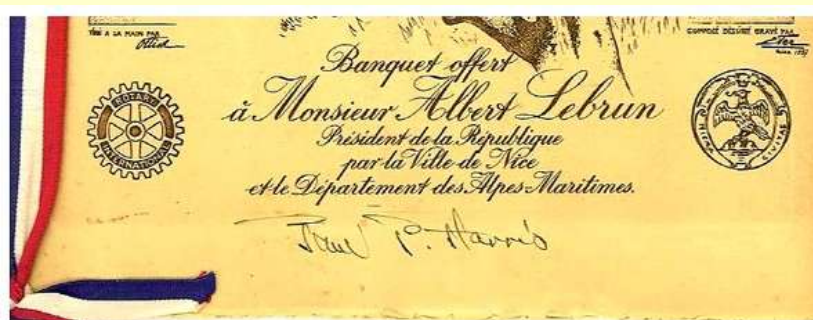 TIRÉ A LA MAIN PAR
COMPOSÉ DESSINÉ GRAVÉ PAR
Banquet offert
à Monsieur Albert Lebrun
Président de la République
par la Ville de Nice
et le Département des Alpes-Maritimes.
ROTARY
INTERNATIONAL
NICÆA CIVITAS
Paul P. Harris